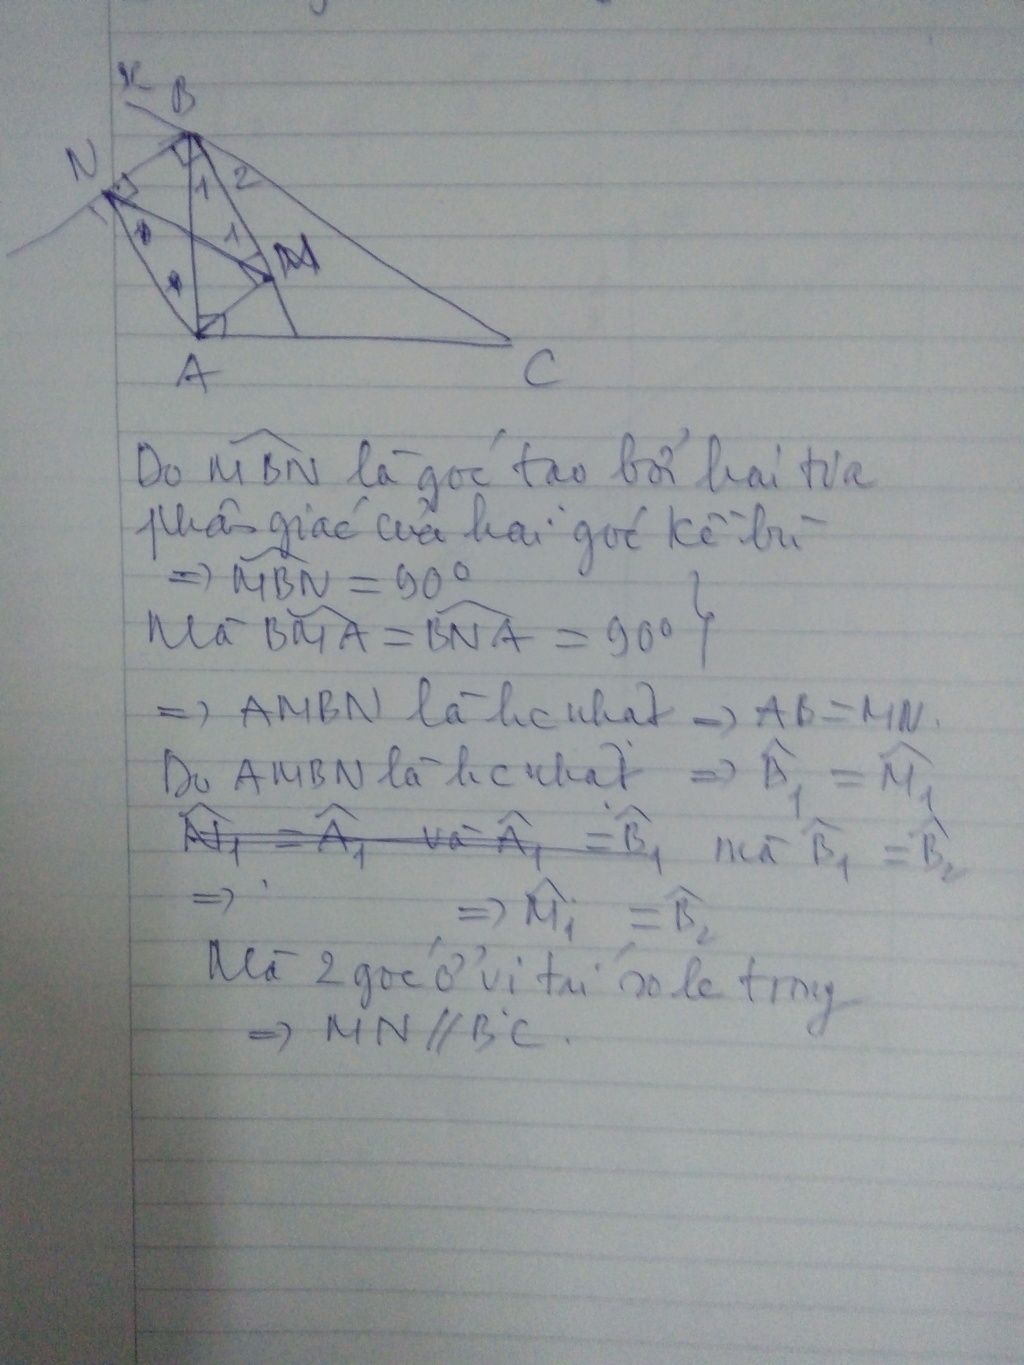 x
B
N
1 2
1 M
A
C
Do MBN là góc tạo bởi hai tia
phân giác của hai góc kề bù
=> MBN = 90°
Mà BMA = BNA = 90° }
=> AMBN là hc nhật => AB = MN.
Do AMBN là hc nhật => B̂₁ = M̂₁
= Â₁ và Â₁ = B̂₁ mà B̂₁ = B̂₂
=> => M̂₁ = B̂₂
Mà 2 góc ở vị trí so le trong
=> MN // BC.